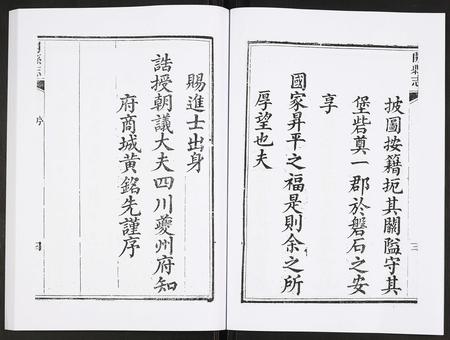 開縣志
披圖按籍扼其關隘守其
堡砦奠一郡於磐石之安
享
國家昇平之福是則余之所
厚望也夫
三
賜進士出身
誥授朝議大夫四川夔州府知
府商城黃銘先謹序
開縣志
序
四